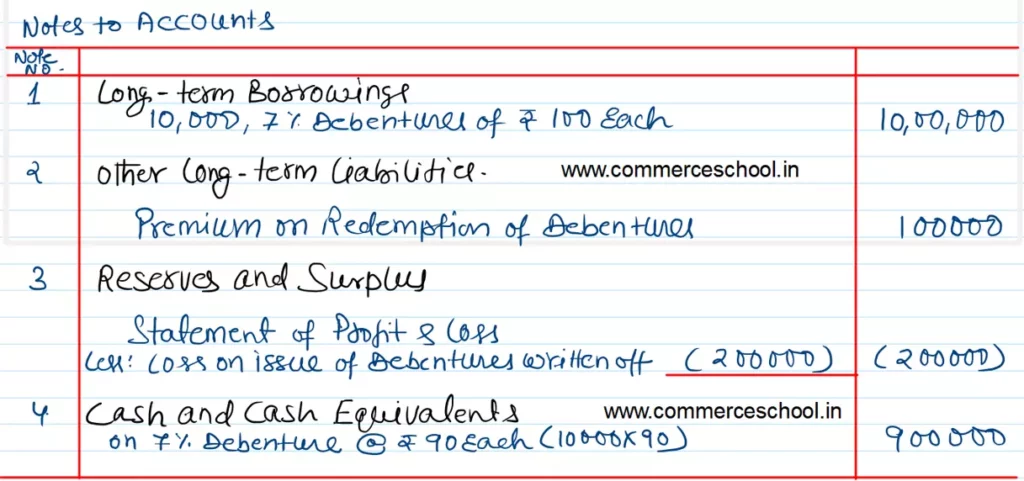 Notes to Accounts
Note No.
1 Long-term Borrowings
10,000, 7% Debentures of ₹ 100 Each 10,00,000
2 Other Long-term Liabilities. www.commerceschool.in
Premium on Redemption of Debentures 100000
3 Reserves and Surplus
Statement of Profit & Loss
Less: Loss on issue of Debentures written off (200000) (200000)
4 Cash and Cash Equivalents www.commerceschool.in
on 7% Debenture @ ₹ 90 Each (10000X90) 900000